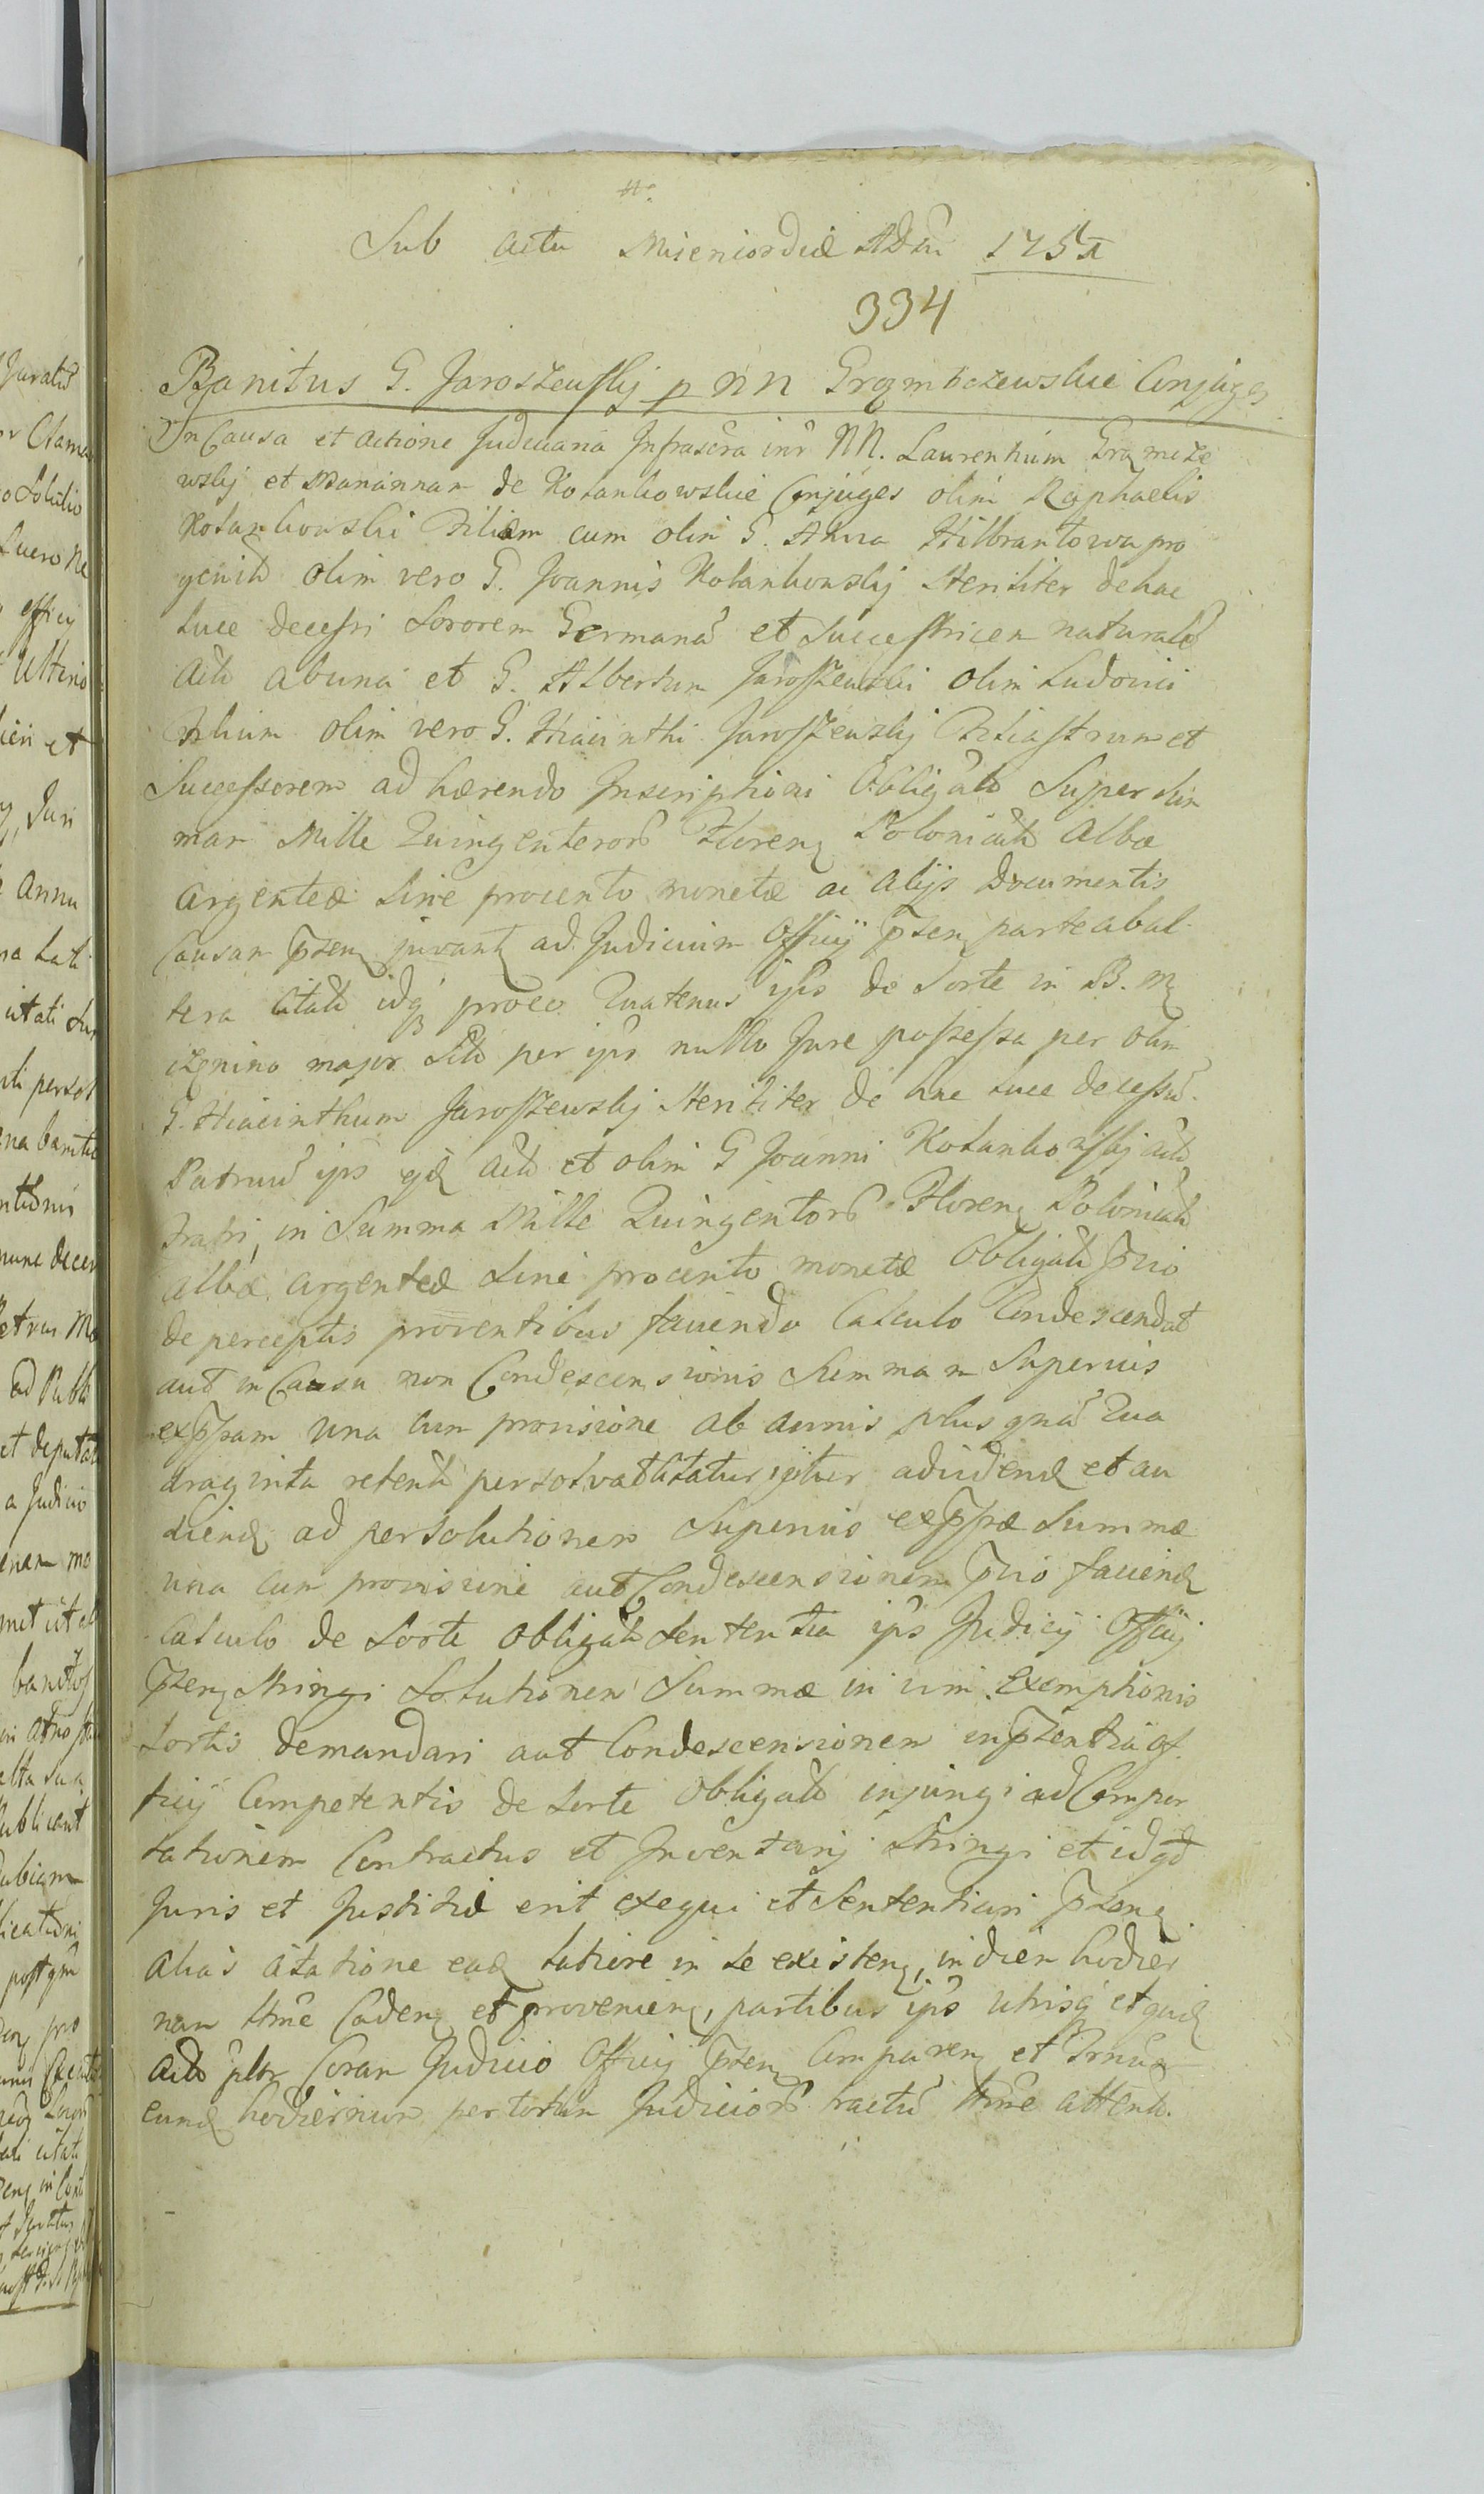 Sub actu Misericordiæ ADni 175
334
Banitus G. Jaroszewskij p NN Grąmbczewskie Conjuges
In Causa et actione Judiciaria Infrascra inr NN. Laurentium Grąmcze
wskij et Mariannam de Kotankowskie Conjuges olim Raphaelis
Kotankowski Filiam cum olim G. Anna Hilbrantowa pro
genit olim vero G. Joannis Kotankowskij Steriliter de hac
luce decessi Sororem Germana et Successricem naturale
act ab una et G. Albertum Jaroszewski olim Ludovici
Filium olim vero G. Hiacinthi Jaroszewskij Filiastrum et
Successorem ad hærendo Inscriptioni Obligato Super Sum
mam Mille Quingenteror Floren Polonicali Albæ
argenteæ Sine procento monetæ ac alijs Documentis
Causam pzen juvant ad Judicium Officij pzen parte ab al
tera citato idq proeo Quatenus ips de Sorte in B. M
major Sit per ips nullo Jure possessa per olim
G. Hiacinthum Jaroszewskij Steriliter de hac luce decessu
Patruu ips ejd act et olim G Joanni Kotankowskij act
Fratri, in Summa Mille Quingentor Floren Polonicali
albæ argenteæ Sine procento monetæ Obligat prio
de perceptis proventibus faciendo Calculo Condescendat
aut in Casu non Condescensionis Summam Superius
exppsam una cum provisione ab annis plus qua Qua
draginta retent persolvat Citatur igitur adviden et au
dien ad persolutionem Superius exppsæ Summæ
una cum provisione aut Condescensionem prio facien
Calculo de Sorte obligat Sententia ips Judicij Officij
pzen Stringi Solutionem Summæ in vim Exemptionis
Sortis demandari aut Condescensionem in pzentia of
ficij Competentis de Sorte obligat injungi ad Compor
tationem Contractus et Inventarij Stringi et id qd
Juris et Justitiæ erit exequi et Sententiari pzen
alias citatione ead latiore in se existen, in diem hodier
nam tmie Caden et provenien, partibus ips utrisq et quid
act pltr Coram Judicio Officij pzen Comparen et Trnum
eund hodiernum per totum Judicior tractu tmie attent.